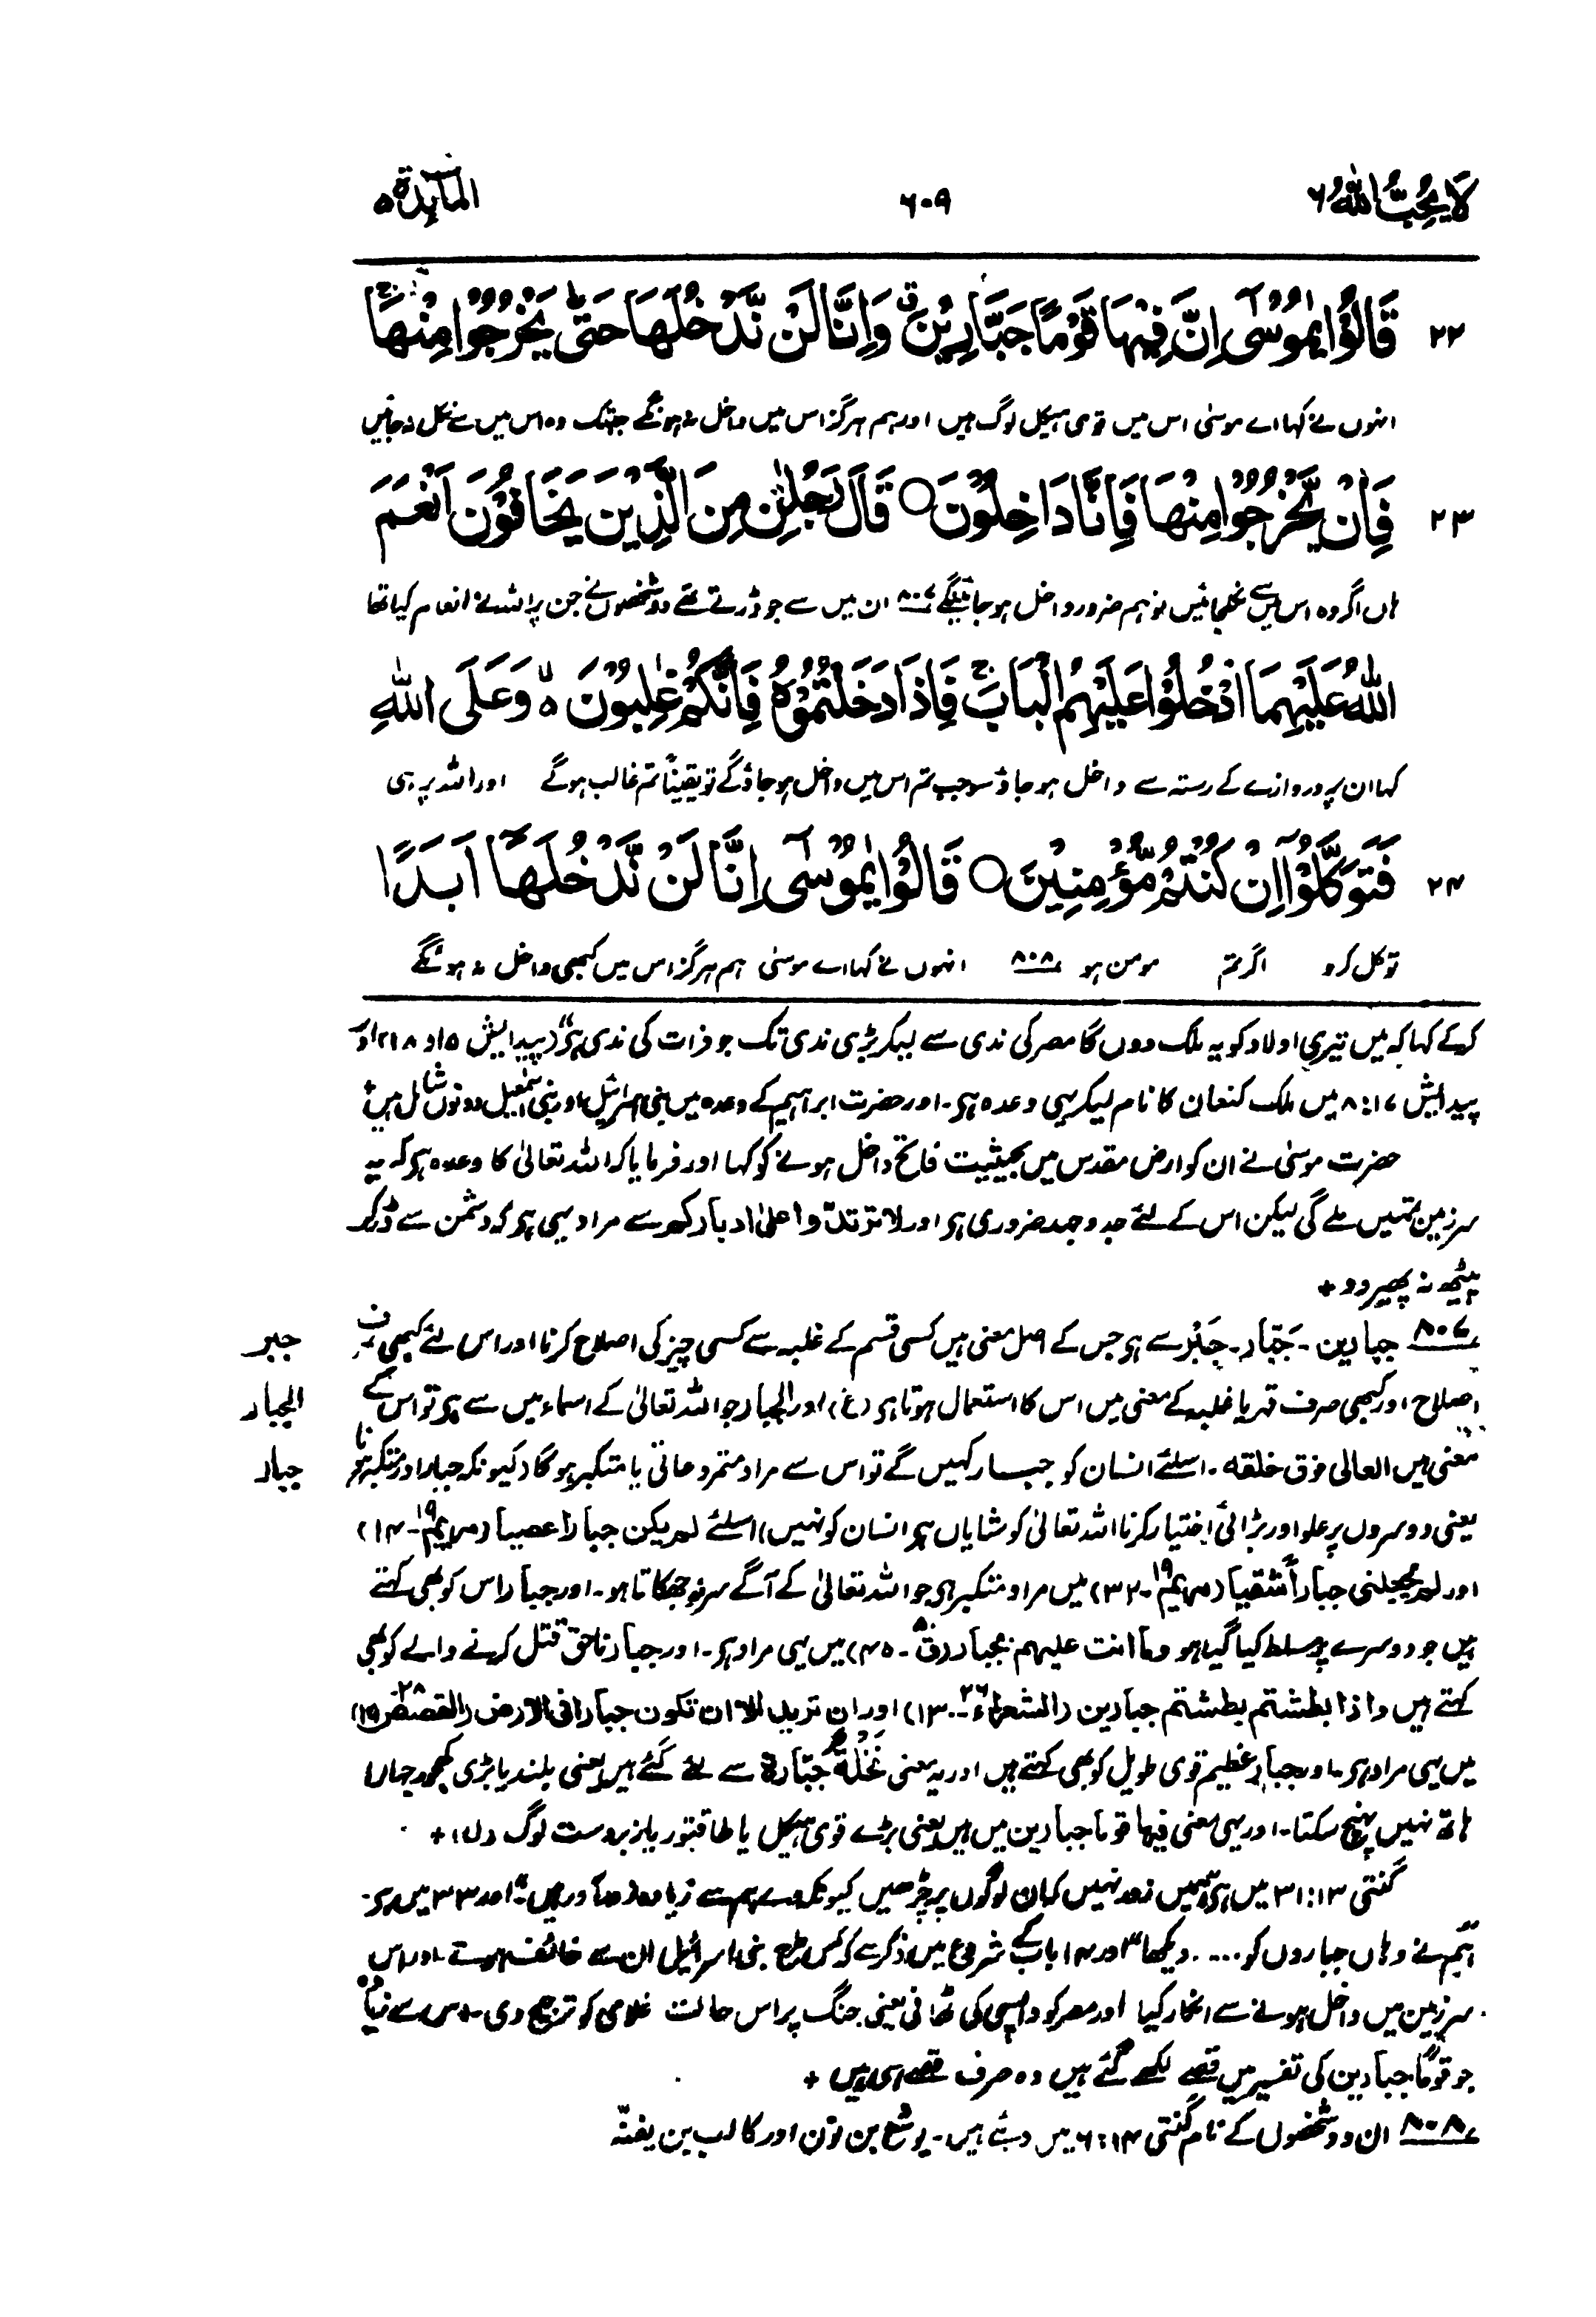 لَا یُحِبُّ اللّٰهُ ۶
۶۰۹
المآئدة ۵
۲۲ قَالُوْا یٰمُوْسٰۤی اِنَّ فِیْهَا قَوْمًا جَبَّارِیْنَ ۖق وَاِنَّا لَنْ نَّدْخُلَهَا حَتّٰی یَخْرُجُوْا مِنْهَا ۚ
انہوں نے کہا اے موسیٰ اس میں قوی ہیکل لوگ ہیں اور ہم ہرگز اس میں داخل نہ ہونگے جبتک وہ اس میں سے نکل نہ جائیں
۲۳ فَاِنْ یَّخْرُجُوْا مِنْهَا فَاِنَّا دَاخِلُوْنَ ○ قَالَ رَجُلٰنِ مِنَ الَّذِیْنَ یَخَافُوْنَ اَنْعَمَ
ہاں اگر وہ اس میں سے نکلجائیں تو ہم ضرور داخل ہو جائینگے ۸۰۷ ان میں سے جو ڈرتے تھے دو شخصوں نے جن پر اللہ نے انعام کیا تھا
اللّٰهُ عَلَیْهِمَا ادْخُلُوْا عَلَیْهِمُ الْبَابَ ۚ فَاِذَا دَخَلْتُمُوْهُ فَاِنَّكُمْ غٰلِبُوْنَ ۵ۚ وَعَلَی اللّٰهِ
کہا ان پر دروازے کے رستہ سے داخل ہو جاؤ سو جب تم اس میں داخل ہو جاؤ گے تو یقیناً تم غالب ہو گے اور اللہ پر ہی
۲۴ فَتَوَكَّلُوْۤا اِنْ كُنْتُمْ مُّؤْمِنِیْنَ ○ قَالُوْا یٰمُوْسٰۤی اِنَّا لَنْ نَّدْخُلَهَاۤ اَبَدًا
توکل کرو اگر تم مومن ہو ۸۰۸ انہوں نے کہا اے موسیٰ ہم ہرگز اس میں کبھی داخل نہ ہونگے
کرکے کہا کہ میں تیری اولاد کو یہ ملک دوں گا مصر کی ندی سے لیکر بڑی ندی تک جو فرات کی ندی ہے" (پیدایش ۱۵ اور ۱۸:۲) اور
پیدایش ۱۷:۸ میں ملک کنعان کا نام لیکر یہی وعدہ ہے۔ اور حضرت ابراہیم کے وعدہ میں بنی اسرائیل اور بنی اسمٰعیل دونوں شامل ہیں +
حضرت موسیٰ نے ان کو ارض مقدس میں بحیثیت فاتح داخل ہونے کو کہا اور فرمایا کہ اللہ تعالیٰ کا وعدہ ہے کہ یہ
سرزمین تمہیں ملے گی لیکن اس کے لئے جدوجہد ضروری ہے اور لا ترتدوا علیٰ ادبارکم سے مراد یہی ہے کہ دشمن سے ڈر کر
پیٹھ نہ پھیر دو +
۸۰۷ جبارین۔ جَبّار۔ جَبْر سے ہے جس کے اصل معنی ہیں کسی قسم کے غلبہ سے کسی چیز کی اصلاح کرنا اور اس لئے کبھی صرف
جبر
اصلاح اور کبھی صرف قہر یا غلبہ کے معنی میں اس کا استعمال ہوتا ہے (غ) اور الجبار جو اللہ تعالیٰ کے اسماء میں سے ہے تو اس کے
الجبار
معنی ہیں العالی فوق خلقه۔ اسلئے انسان کو جبار کہیں گے تو اس سے مراد متمرد عاتی یا متکبر ہو گا (کیونکہ جبار اور متکبر ہونا
جبار
یعنی دوسروں پر علو اور بڑائی اختیار کرنا اللہ تعالیٰ کو شایاں ہے انسان کو نہیں) اسلئے لم یکن جبارا عصیا (مریم ۱۹۔ ۱۴)
اور لم یجعلنی جبارا شقیا (مریم ۱۹۔ ۳۲) میں مراد متکبر ہے جو اللہ تعالیٰ کے آگے سر نہ جھکاتا ہو۔ اور جبار اس کو بھی کہتے
ہیں جو دوسرے پر مسلط کیا گیا ہو وما انت علیهم بجبار (ق ۵۰۔ ۴۵) میں یہی مراد ہے۔ اور جبار ناحق قتل کرنے والے کو بھی
کہتے ہیں واذا بطشتم بطشتم جبارین (الشعراء ۲۶۔ ۱۳۰) اور ان ترید الا ان تکون جبارا فی الارض (القصص ۲۸۔ ۱۹)
میں یہی مراد ہے۔ اور جبار عظیم قوی طویل کو بھی کہتے ہیں اور یہ معنی نَخْلَةٌ جبّارة سے لئے گئے ہیں یعنی بلند یا بڑی کھجور جہاں
ہاتھ نہیں پہنچ سکتا۔ اور یہی معنی فیها قوما جبارین میں ہیں یعنی بڑے قوی ہیکل یا طاقتور یا زبردست لوگ (ل) +
گنتی ۱۳:۳۱ میں ہے ہمیں زور نہیں کہ ان لوگوں پر چڑھیں کیونکہ وے ہم سے زیادہ زورآور ہیں۔ اور ۳۳ میں ہے۔
"ہم نے وہاں جباروں کو .... دیکھا" اور ۱۴ باب کے شروع میں ذکر ہے کہ کس طرح بنی اسرائیل ان سے خائف ہوئے۔ اور اس
سرزمین میں داخل ہونے سے انکار کیا اور مصر کو واپسی کی ٹھانی یعنی جنگ پر اس حالت غلامی کو ترجیح دی۔ اس سے زیادہ
جو قوماً جبارین کی تفسیر میں قصے لکھے گئے ہیں وہ صرف قصے ہی ہیں +
۸۰۸ ان دو شخصوں کے نام گنتی ۱۴:۶ میں دیئے ہیں۔ یوشع بن نون اور کالب بن یفنّہ